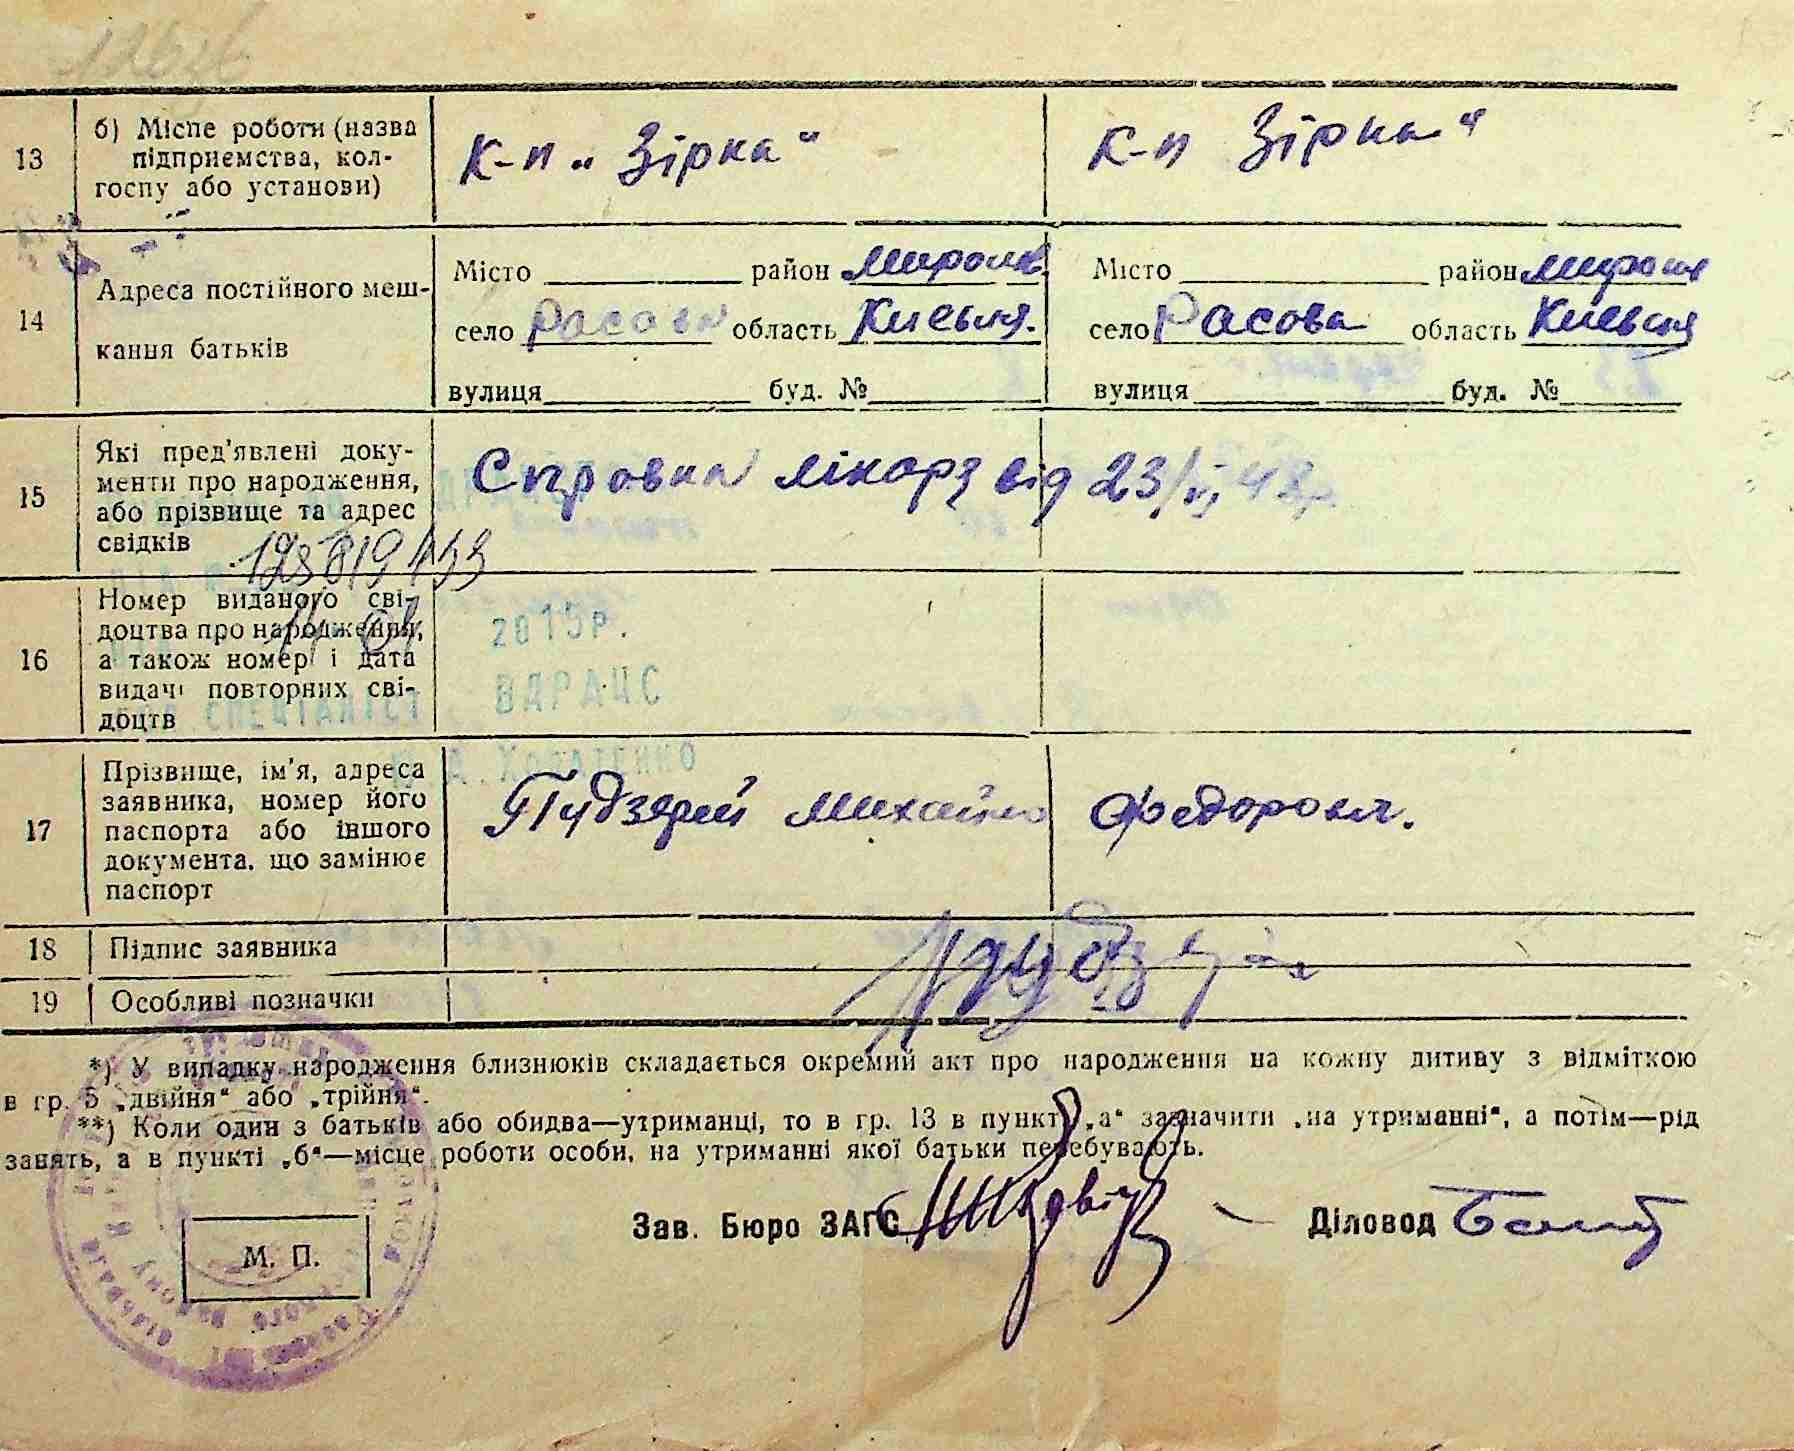 13
б) Місце роботи (назва
підприємства, кол-
госпу або установи)
К-п „Зірка“
К-п Зірка“
14
Адреса постійного меш-
кання батьків
Місто район Миронів.
село Расова область Київськ.
вулиця буд. №
Місто район Миронів
село Расова область Київськ
вулиця буд. №
15
Які пред'явлені доку-
менти про народження,
або прізвище та адрес
свідків
Справка лікаря від 23/
16
Номер виданого сві-
доцтва про народження,
а також номер і дата
видачі повторних сві-
доцтв
2015р.
ВДРАЦС
СПЕЦІАЛІСТ
17
Прізвище, ім'я, адреса
заявника, номер його
паспорта або іншого
документа, що замінює
паспорт
Михайло Федорович.
18
Підпис заявника
19
Особливі позначки
*) У випадку народження близнюків складається окремий акт про народження на кожну дитину з відміткою
в гр. 5 „двійня“ або „трійня“.
**) Коли один з батьків або обидва—утриманці, то в гр. 13 в пункті „а“ зазначити „на утриманні“, а потім—рід
занять, а в пункті „б“—місце роботи особи, на утриманні якої батьки перебувають.
Зав. Бюро ЗАГС
Діловод
М. П.